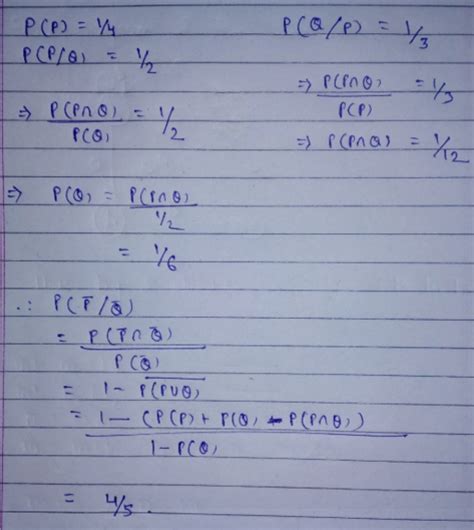 P(P) = 1/4
P(Q/P) = 1/3
P(P/Q) = 1/2
⇒ P(P∩Q)/P(P) = 1/3
⇒ P(P∩Q)/P(Q) = 1/2
⇒ P(P∩Q) = 1/12
⇒ P(Q) = P(P∩Q)/1/2
= 1/6
∴ P(P̄/Q̄)
= P(P̄∩Q̄)
P(Q̄)
= 1 - P(P∪Q)
= 1 - (P(P) + P(Q) - P(P∩Q))
1 - P(Q)
= 4/5.